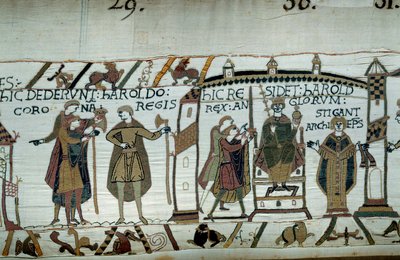 29. 30. 31.
ES:
hIC DEDERVNT: hAROLDO:
CORONA REGIS
hIC RE SIDET: hAROLD
REX: AN GLORVM:
STIGANT
ARChIEPS